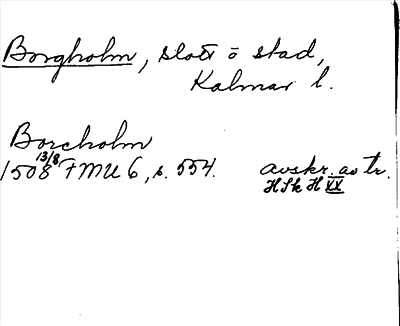 Borgholm, slott o stad,
Kalmar l.
Borcholm
1508 13/8 FMU 6, s. 554. avskr. av tr.
H Sk H XX